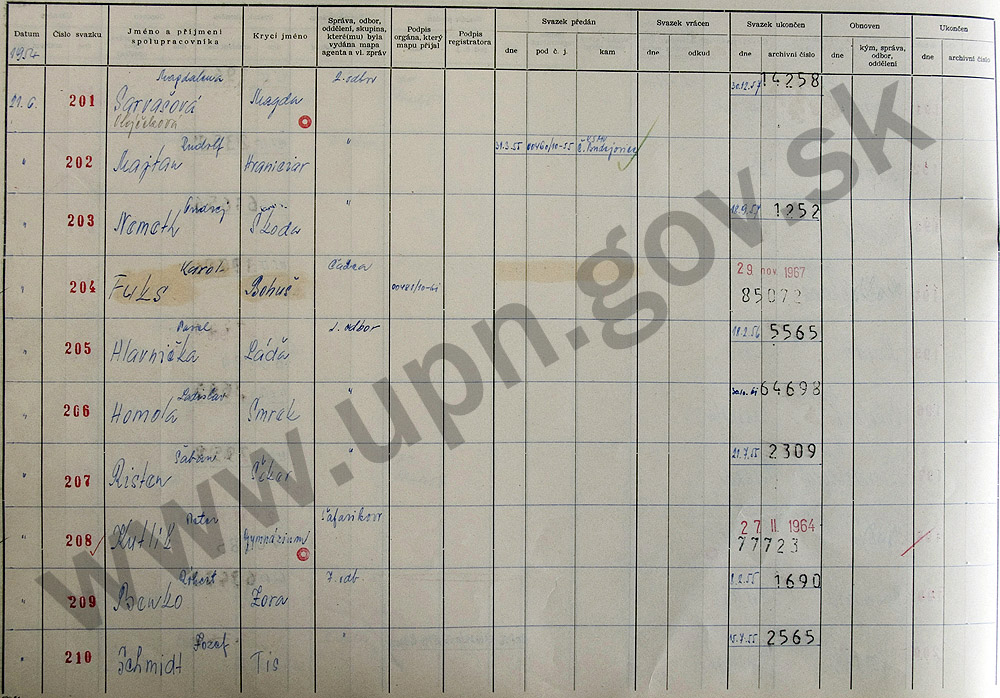 Datum
Číslo svazku
Jméno a příjmení spolupracovníka
Krycí jméno
Správa, odbor, oddělení, skupina, které(mu) byla vydána mapa agenta a vl. zpráv
Podpis orgána, který mapu přijal
Podpis registratora
Svazek předán
dne
pod č. j.
kam
Svazek vrácen
dne
odkud
Svazek ukončen
dne
archivní číslo
Obnoven
dne
kým, správa, odbor, oddělení
Ukončen
dne
archivní číslo
1954
21.6. 201 Magdalena Sarvašová Magda 2. odbor 30.12.57 14258
" 202 Rudolf Majtan Hraničiar " 31.3.55 00460/10-55
" 203 Andrej Nemeth Škoda " 1252
" 204 Karol Fuks Bohuš Čadca 00481/10-61 29. nov. 1967 85072
" 205 Pavel Hlavnička Láďa 1. odbor 18.2.56 5565
" 206 Ladislav Homola Smrek " 64698
" 207 Ristan " 21.7.55 2309
" 208 Peter Kutlík Gymnázium Šafarikovo 27 II. 1964 77723
" 209 Robert Benko Zora 7. odb. 1690
" 210 Jozef Schmidt Tis " 2565
www.upn.gov.sk